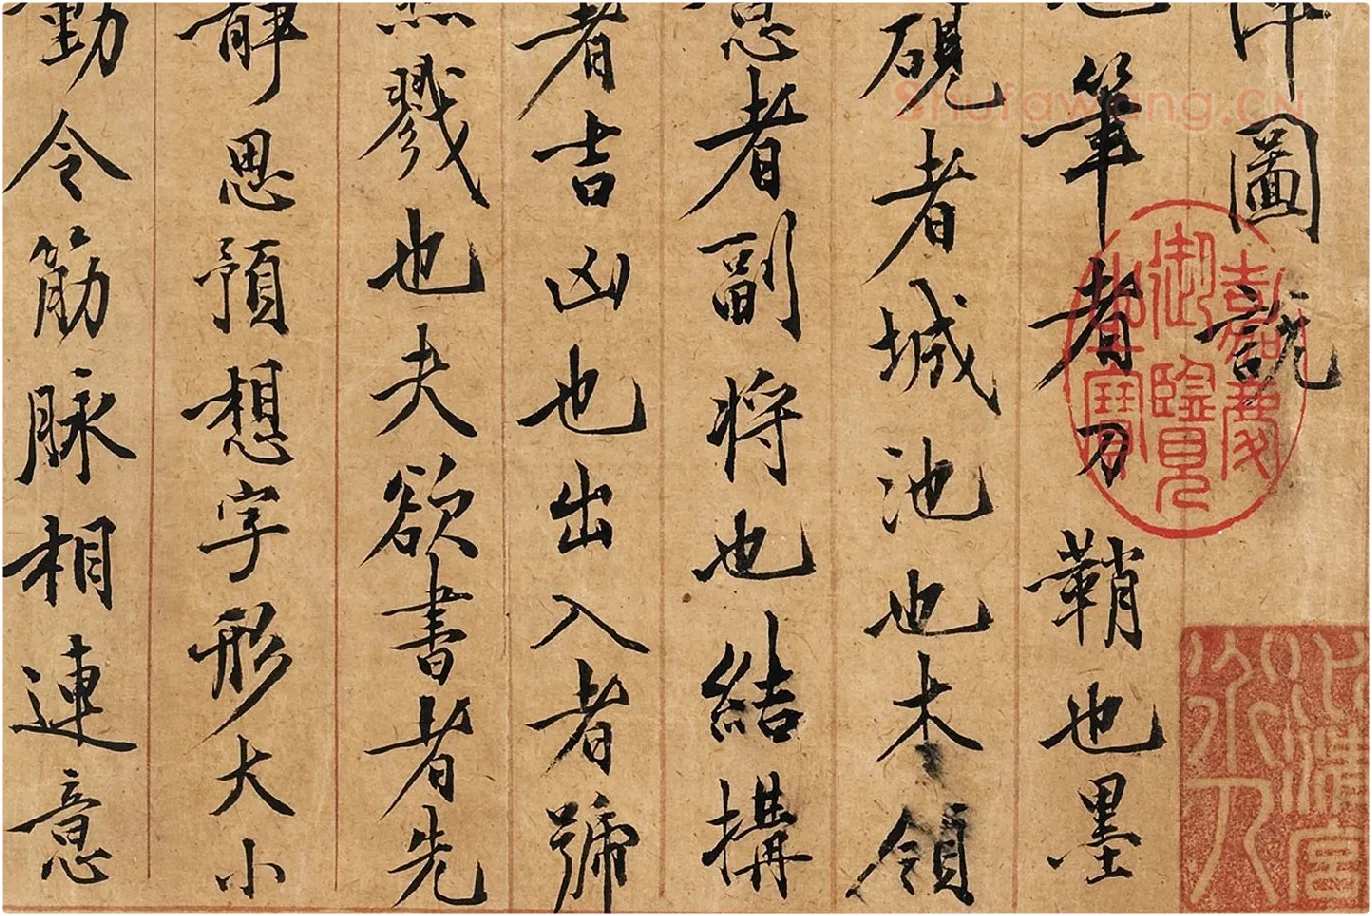 陣圖説
也筆者刀鞘也墨
硯者城池也本領
意者副将也結構
者吉凶也出入者號
然戮也夫欲書者先
静思預想字形大小
動令筋脉相連意
嘉慶御覽之寶
Shufawang.CN